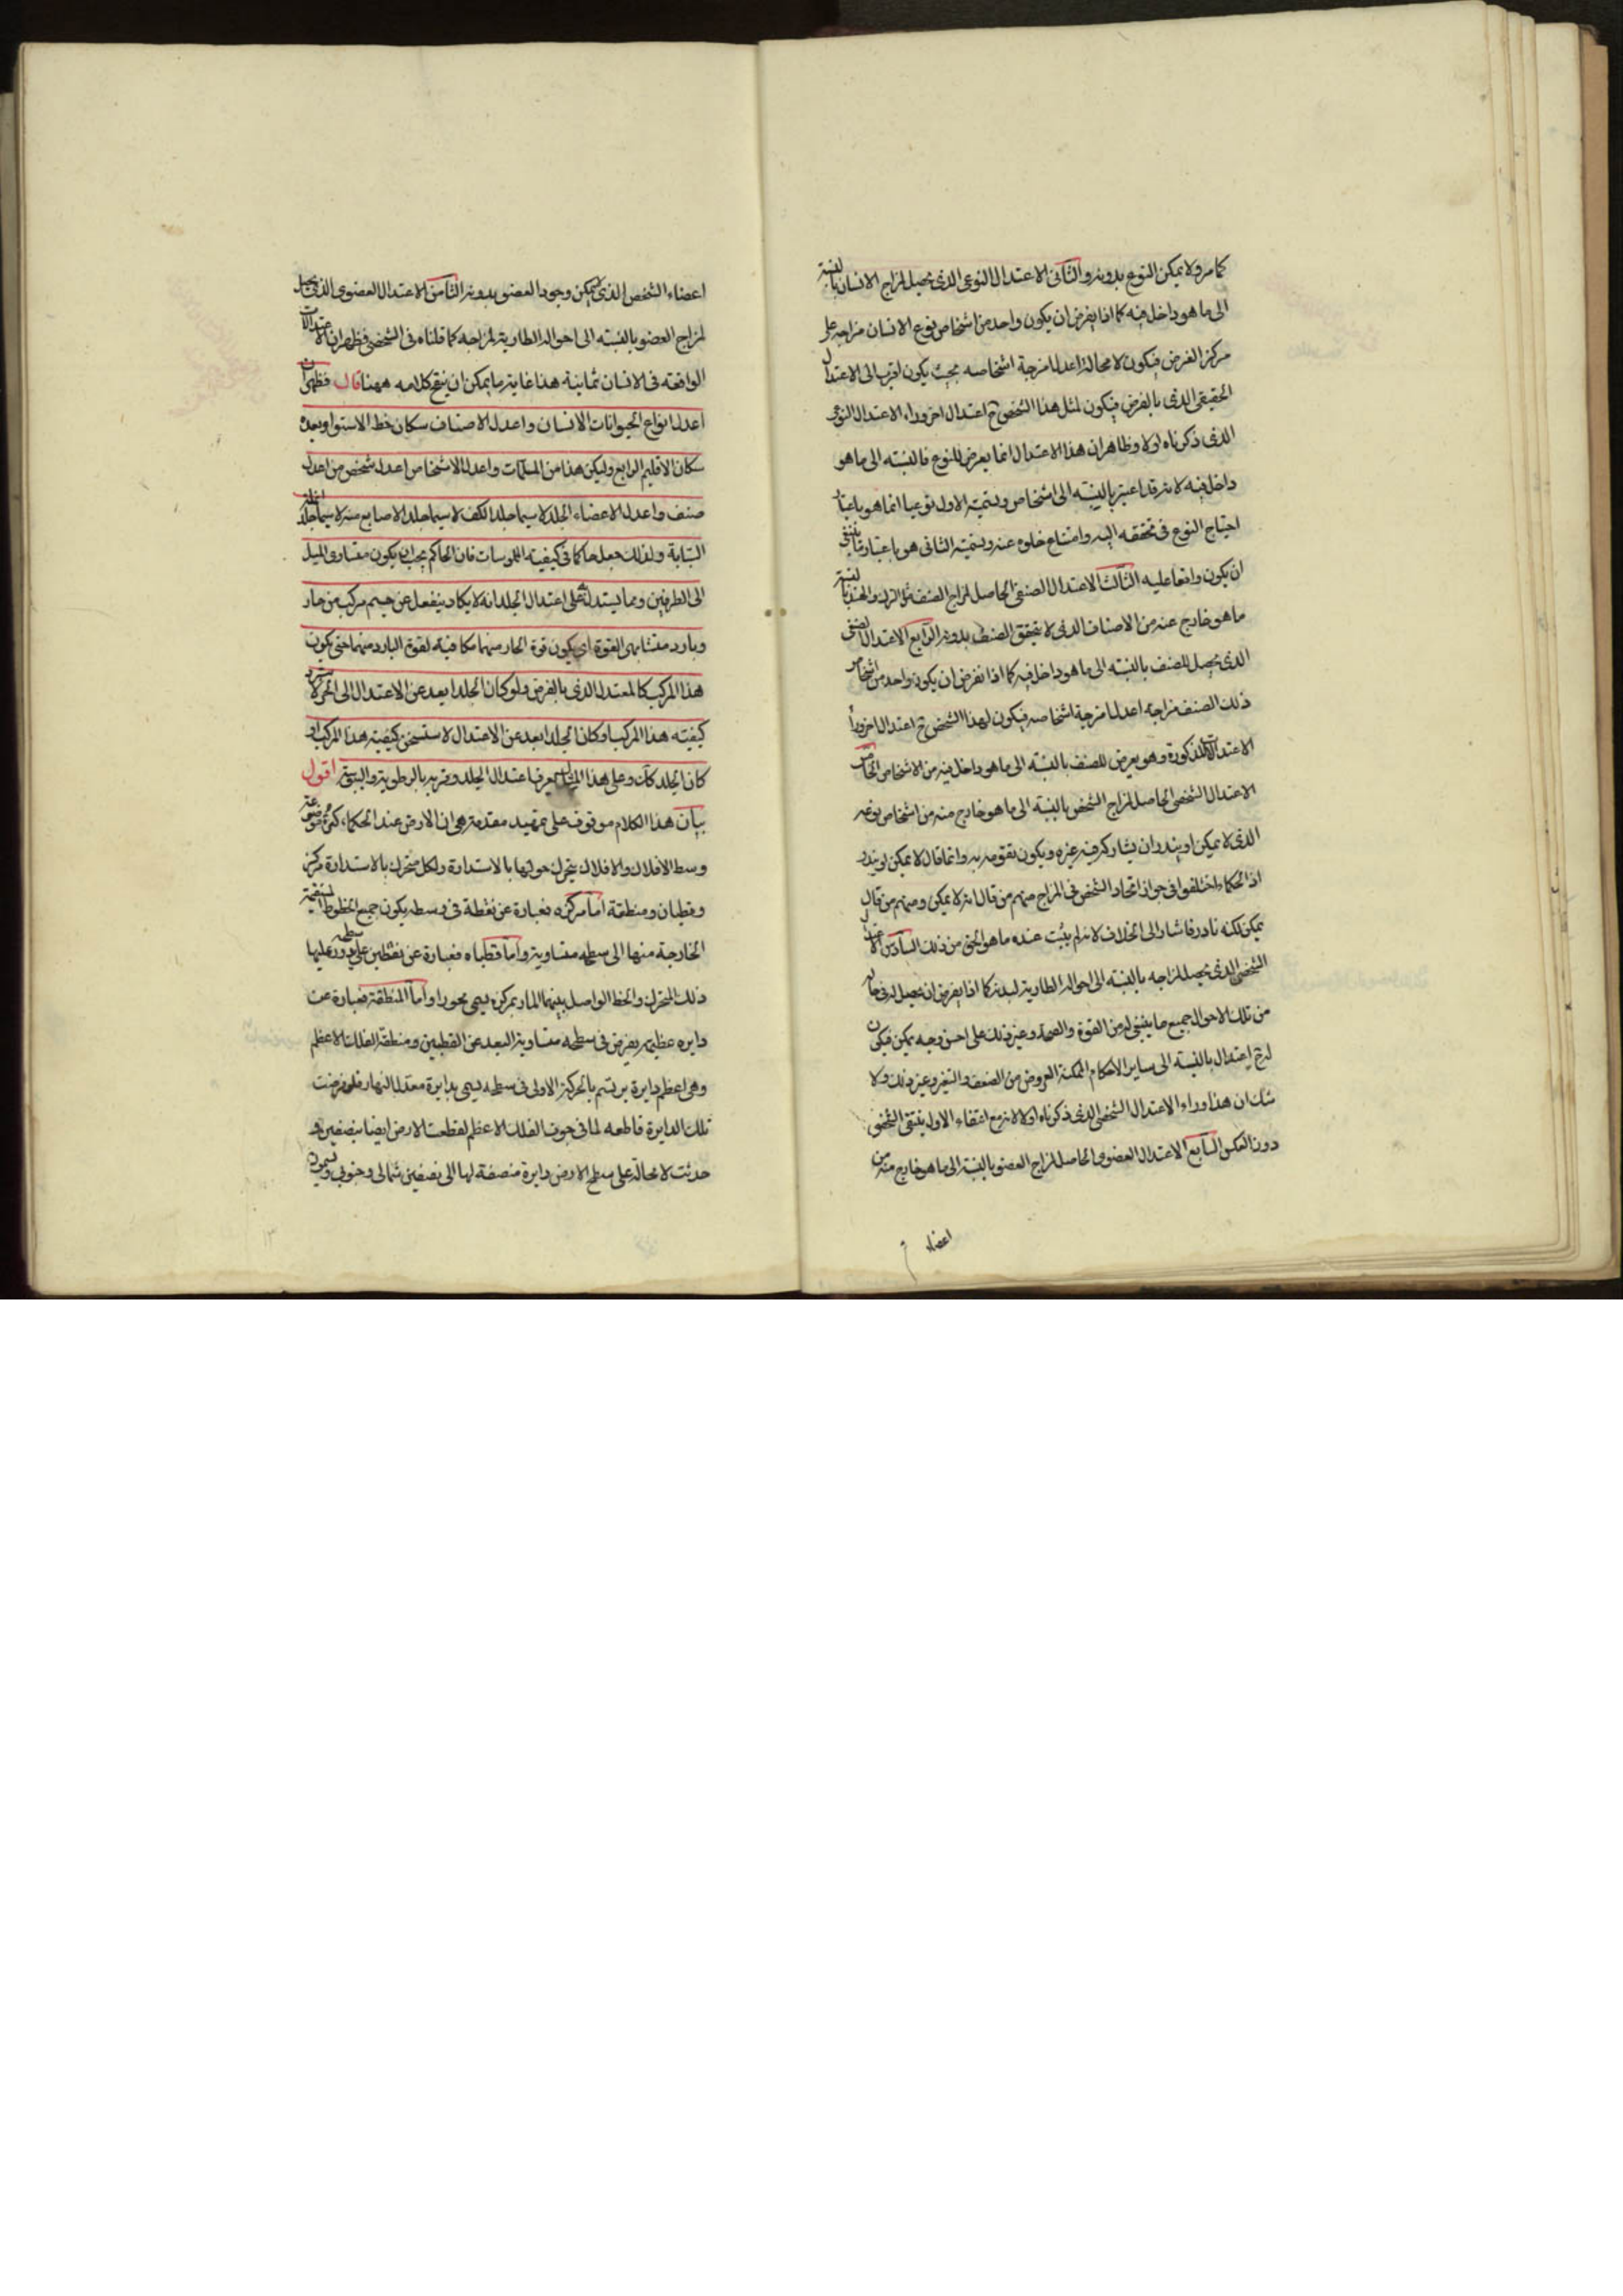 كما مر ولا يمكن النوع بدونه والثانى الاعتدال النوعى الذى يحصل لمزاج الانسان بالنسبة
الى ما هو داخل فيه كما اذا يفرض ان يكون واحد من اشخاص نوع الانسان مزاجه على
مركز العرض فيكون لا محالة اعدل امزجة اشخاصه بحيث يكون اقرب الى الاعتدال
الحقيقى الذى بالفرض فيكون لمثل هذا الشخص ح اعتدال اخر وراء الاعتدال النوعى
الذى ذكرناه اولا وظاهر ان هذا الاعتدال انما يعرض للنوع فالنسبه الى ما هو
داخل فيه لانه قد اعتبر بالنسبة الى اشخاص وتسمية الاول نوعيا انما هو باعتبار
احتياج النوع فى تحققه اليه وامتناع خلوه عنه وتسمية الثانى هو باعتبار ما ينبغى
ان يكون واقعا عليه الثالث الاعتدال الصنفى الحاصل لمزاج الصنف مثل الترك والهند بالنسبة
ما هو خارج عنه من الاصناف الذى لا يتحقق الصنف بدونه الرابع الاعتدال الصنفى
الذى يحصل للصنف بالنسبه الى ما هو داخل فيه كما اذا نفرض ان يكون واحد من اشخاص
ذلك الصنف مزاجه اعدل امزجة اشخاصه فيكون لهذا الشخص ح اعتدال اخر وراء
الاعتدالات المذكورة وهو يعرض للصنف بالنسبه الى ما هو داخل فيه من الاشخاص الخامس
الاعتدال الشخصى الحاصل لمزاج الشخص بالنسبة الى ما هو خارج منه من اشخاص نوعه
الذى لا يمكن او يندر ان يشاركه فيه غيره ويكون تقومه به وانما قال لا يمكن او يندر
اذ الحكماء اختلفوا فى جواز اتحاد الشخص فى المزاج منهم من قال انه لا يمكن ومنهم من قال
يمكن لكنه نادر فاشار الى الخلاف لانه لم يثبت عنده ما هو الحق من ذلك السادس الاعتدال
الشخصى الذى يحصل لمزاجه بالنسبه الى احواله الطارية لبدنه كما اذا يفرض ان يحصل له فى حاله
من تلك الاحوال جميع ما ينبغى له من القوة والصحة وغير ذلك على احسن وجه يمكن فيكون
له ح اعتدال بالنسبة الى ساير الاحكام الممكنة العروض من الضعف والتغير وغير ذلك ولا
شك ان هذا وراء الاعتدال الشخصى الذى ذكرناه اولا لانه مع انتفاء الاول ينتفى الشخص
دون العكس السابع الاعتدال العضوى الحاصل لمزاج العضو بالنسبة الى ما هو خارج منه من
اعضاء
اعضاء الشخص الذى لا يمكن وجود العضو بدونه الثامن الاعتدال العضوى الذى يحصل
لمزاج العضو بالنسبته الى احواله الطارية لمزاجه كما قلناه فى الشخصى فظهر ان الاعتدالات
الواقعه فى الانسان ثمانية هذا غاية ما يمكن ان ينقح كلامه ههنا قال فظهر ان
اعدل انواع الحيوانات الانسان واعدل الاصناف سكان خط الاستوا وبعده
سكان الاقليم الرابع وليكن هذا من المسلمات واعدل الاشخاص اعدل شخص من اعدل
صنف واعدل الاعضاء الجلد لا سيما جلد الكف لا سيما جلد الاصابع منه لا سيما جلد انملة
السبابة ولذلك جعل حاكما فى كيفيته الملموسات فان الحاكم يجب ان يكون متساوى الميل
الى الطرفين ومما يستدل به على اعتدال الجلد انه لا يكاد ينفعل عن جسم مركب من حار
وبارد متشابهى القوة اى يكون قوة الحار منهما مكافية لقوة البارد منهما حتى يكون
هذا المركب كالمعتدل الذى بالفرض ولو كان الجلد ابعد عن الاعتدال الى الحر لاستبرد
كيفيته هذا المركب او كان الجلد ابعد عن الاعتدال لاستسخن كيفيته هذا المركب او
كان الجلد كك وعلى هذا المثال يعرف اعتدال الجلد وقربه بالرطوبة واليبوسة اقول
بيان هذا الكلام موقوف على تمهيد مقدمة هى ان الارض عند الحكماء كرة موضوعة
وسط الافلاك والافلاك يتحرك حولها بالاستدارة ولكل متحرك بالاستدارة مركز
وقطبان ومنطقة اما مركزه فعبارة عن نقطة فى وسطه يكون جميع الخطوط المستقيمة
الخارجة منها الى سطحه متساوية واما قطباه فعبارة عن نقطتين على سطحه يدور عليها
ذلك المتحرك والخط الواصل بينهما المار بمركزه يسمى محورا واما المنطقة فعبارة عن
دايره عظيمه يفرض فى سطحه متساوية البعد عن القطبين ومنطقة الفلك الاعظم
وهى اعظم دايرة يرتسم بالحركة الاولى فى سطحه يسمى بدايرة معدل النهار فلو فرضت
تلك الدايرة قاطعه لما فى جوف الفلك الاعظم لقطعت الارض ايضا بنصفين و
حدثت لا محالة على سطح الارض دايرة منصفة لها الى نصفين شمالى وجنوبى ويسمون